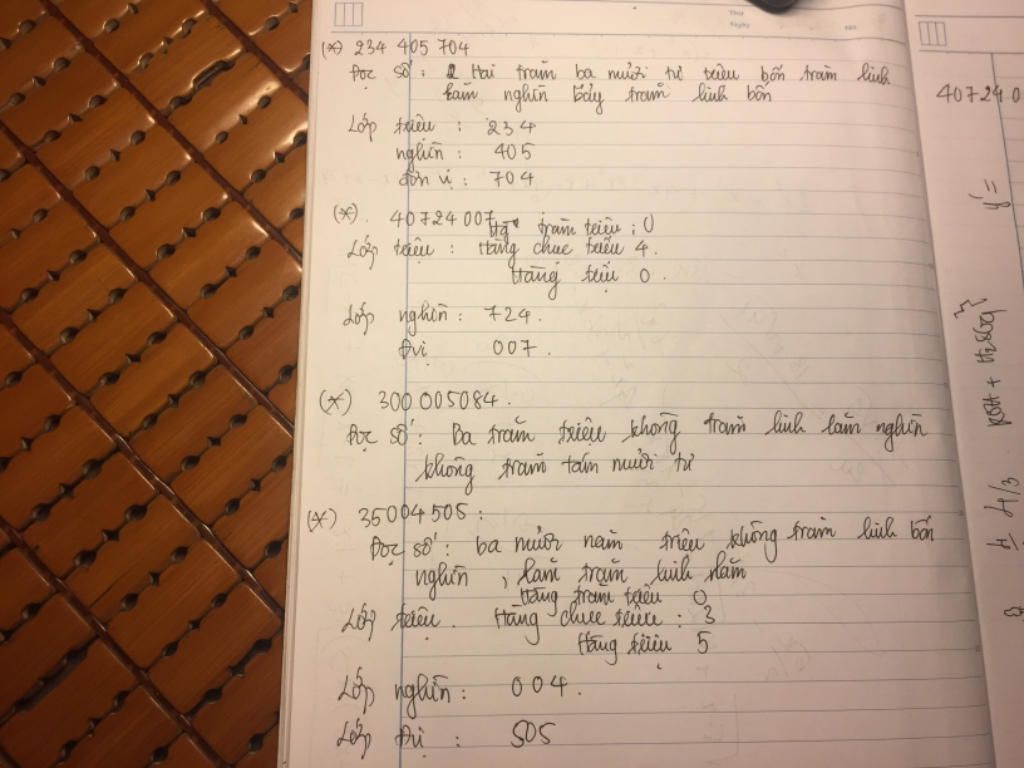 Thứ
Ngày No.
(*) 234 405 704
Đọc số : Hai trăm ba mươi tư triệu bốn trăm linh
lăm nghìn bảy trăm linh bốn
Lớp triệu : 234
nghìn : 405
đơn vị : 704
(*). 40724007
trăm triệu : 0
Lớp triệu : Hàng chục triệu 4.
Hàng triệu 0.
Lớp nghìn : 724.
Đvị 007.
(*) 300 005084.
Đọc số : Ba trăm triệu không trăm linh lăm nghìn
không trăm tám mươi tư
(*) 35004505 :
Đọc số : ba mươi năm triệu không trăm linh bốn
nghìn , lăm trăm linh năm
Hàng trăm triệu 0
Lớp triệu. Hàng chục triệu : 3
Hàng triệu 5
Lớp nghìn : 004.
Lớp Đvị : 505
407240
y' =
KOH + H₂SO₄